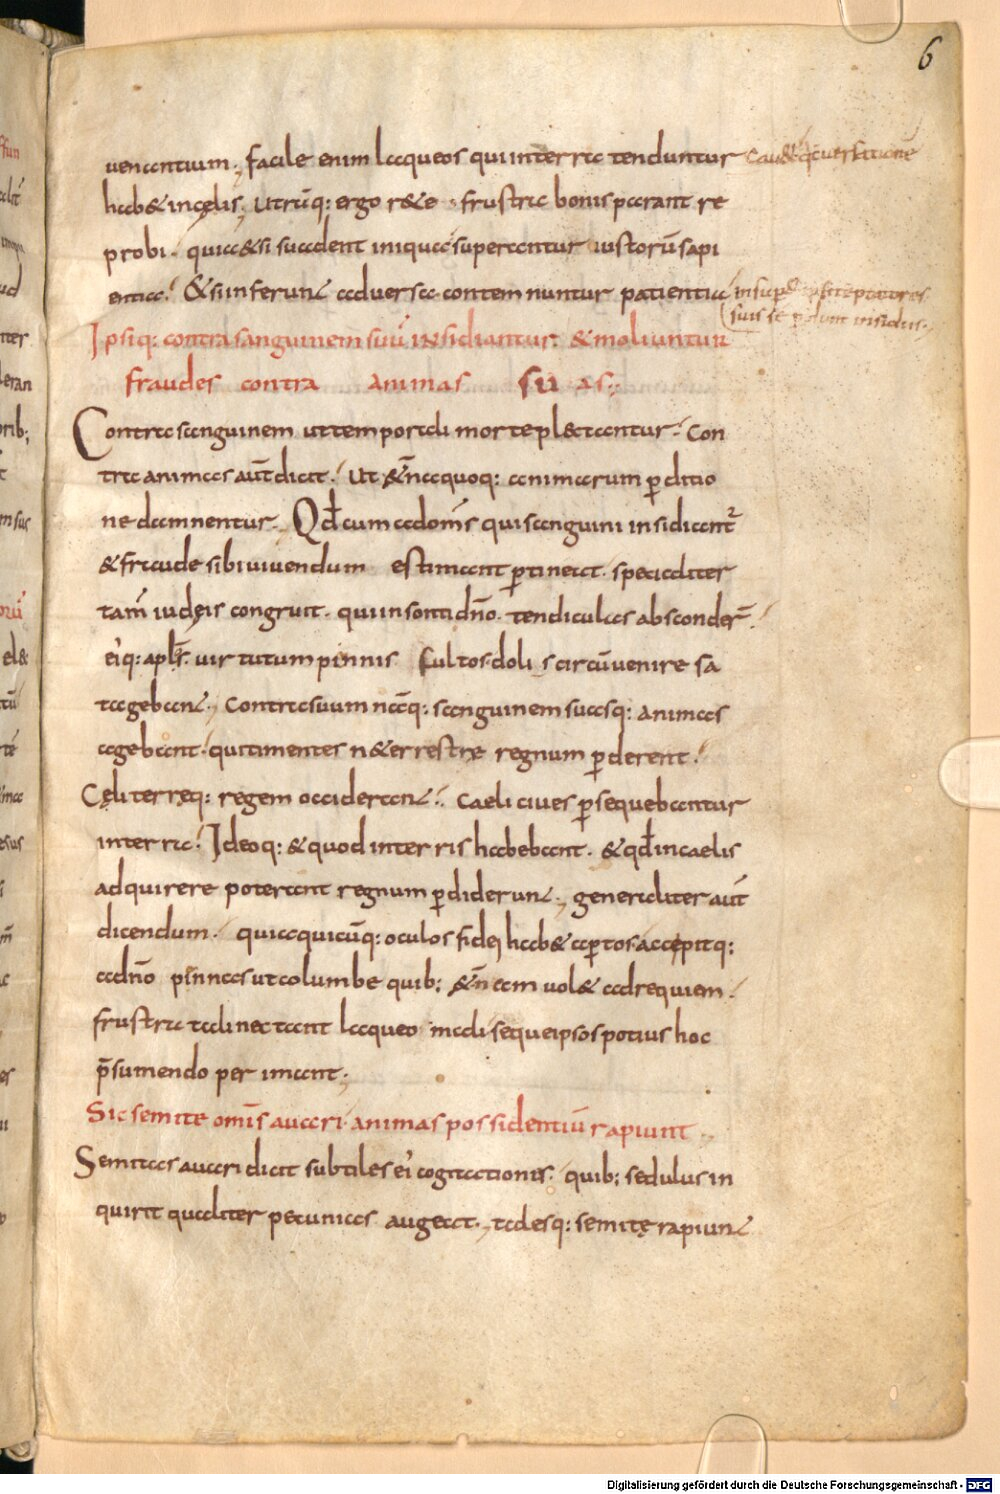 6
ueniantium. facile enim laqueos qui in terra tenduntur cauet qui conuersatione
habet in cęlis. Utrūq: ergo r&e frustra bonis parant re
probi. quia &si suadent iniqua superantur iustorū sapi
entia. & si inferunt aduersa contemnuntur patientia insup
suis se insidiis.
Ipsiq: contra sanguinem suū insidiantur. & moliuntur
fraudes contra animas suas.
Contra sanguinem ut temporali morte pl&tantur. Con
tra animas aūt dicit. Ut &ñ aquoq: animarum pditio
ne damnentur. Qđ cum ad om̄s qui sanguini insidiant̄
& fraude sibi uiuendum estimant ptineat. specialiter
tam̄ iudęis congruit. qui insonti dn̄o. tendiculas absconder̄.
eiq: aplīs. uirtutum pinnis fultos doli s circūuenire sa
tagebant. Contra suum nāq: sanguinem suasq: animas
agebant. qui timentes n&errestrę regnum pderent.
Cęli terręq: regem occiderant. Caeli ciues psequebantur
in terra. Ideoq: & quod in terris habebant. & qđ in caelis
adquirere poterant regnum pdiderunt. generaliter aūt
dicendum. quia quicūq: oculos fidei hab& aptos. accepitq:
a dn̄o pinnas ut columbe quib: &ñ eam uol& ad requiem.
frustra tali nectant laqueo mali seque ipsos potius hoc
p̄sumendo perimant.
Sic semite om̄s auari. animas possidentiū rapiunt.
Semitas auari dicit subtiles ei cogitationis. quib: sedulus in
quirit qualiter pecunias augeat. talesq: semitę rapiunt
Digitalisierung gefördert durch die Deutsche Forschungsgemeinschaft - DFG